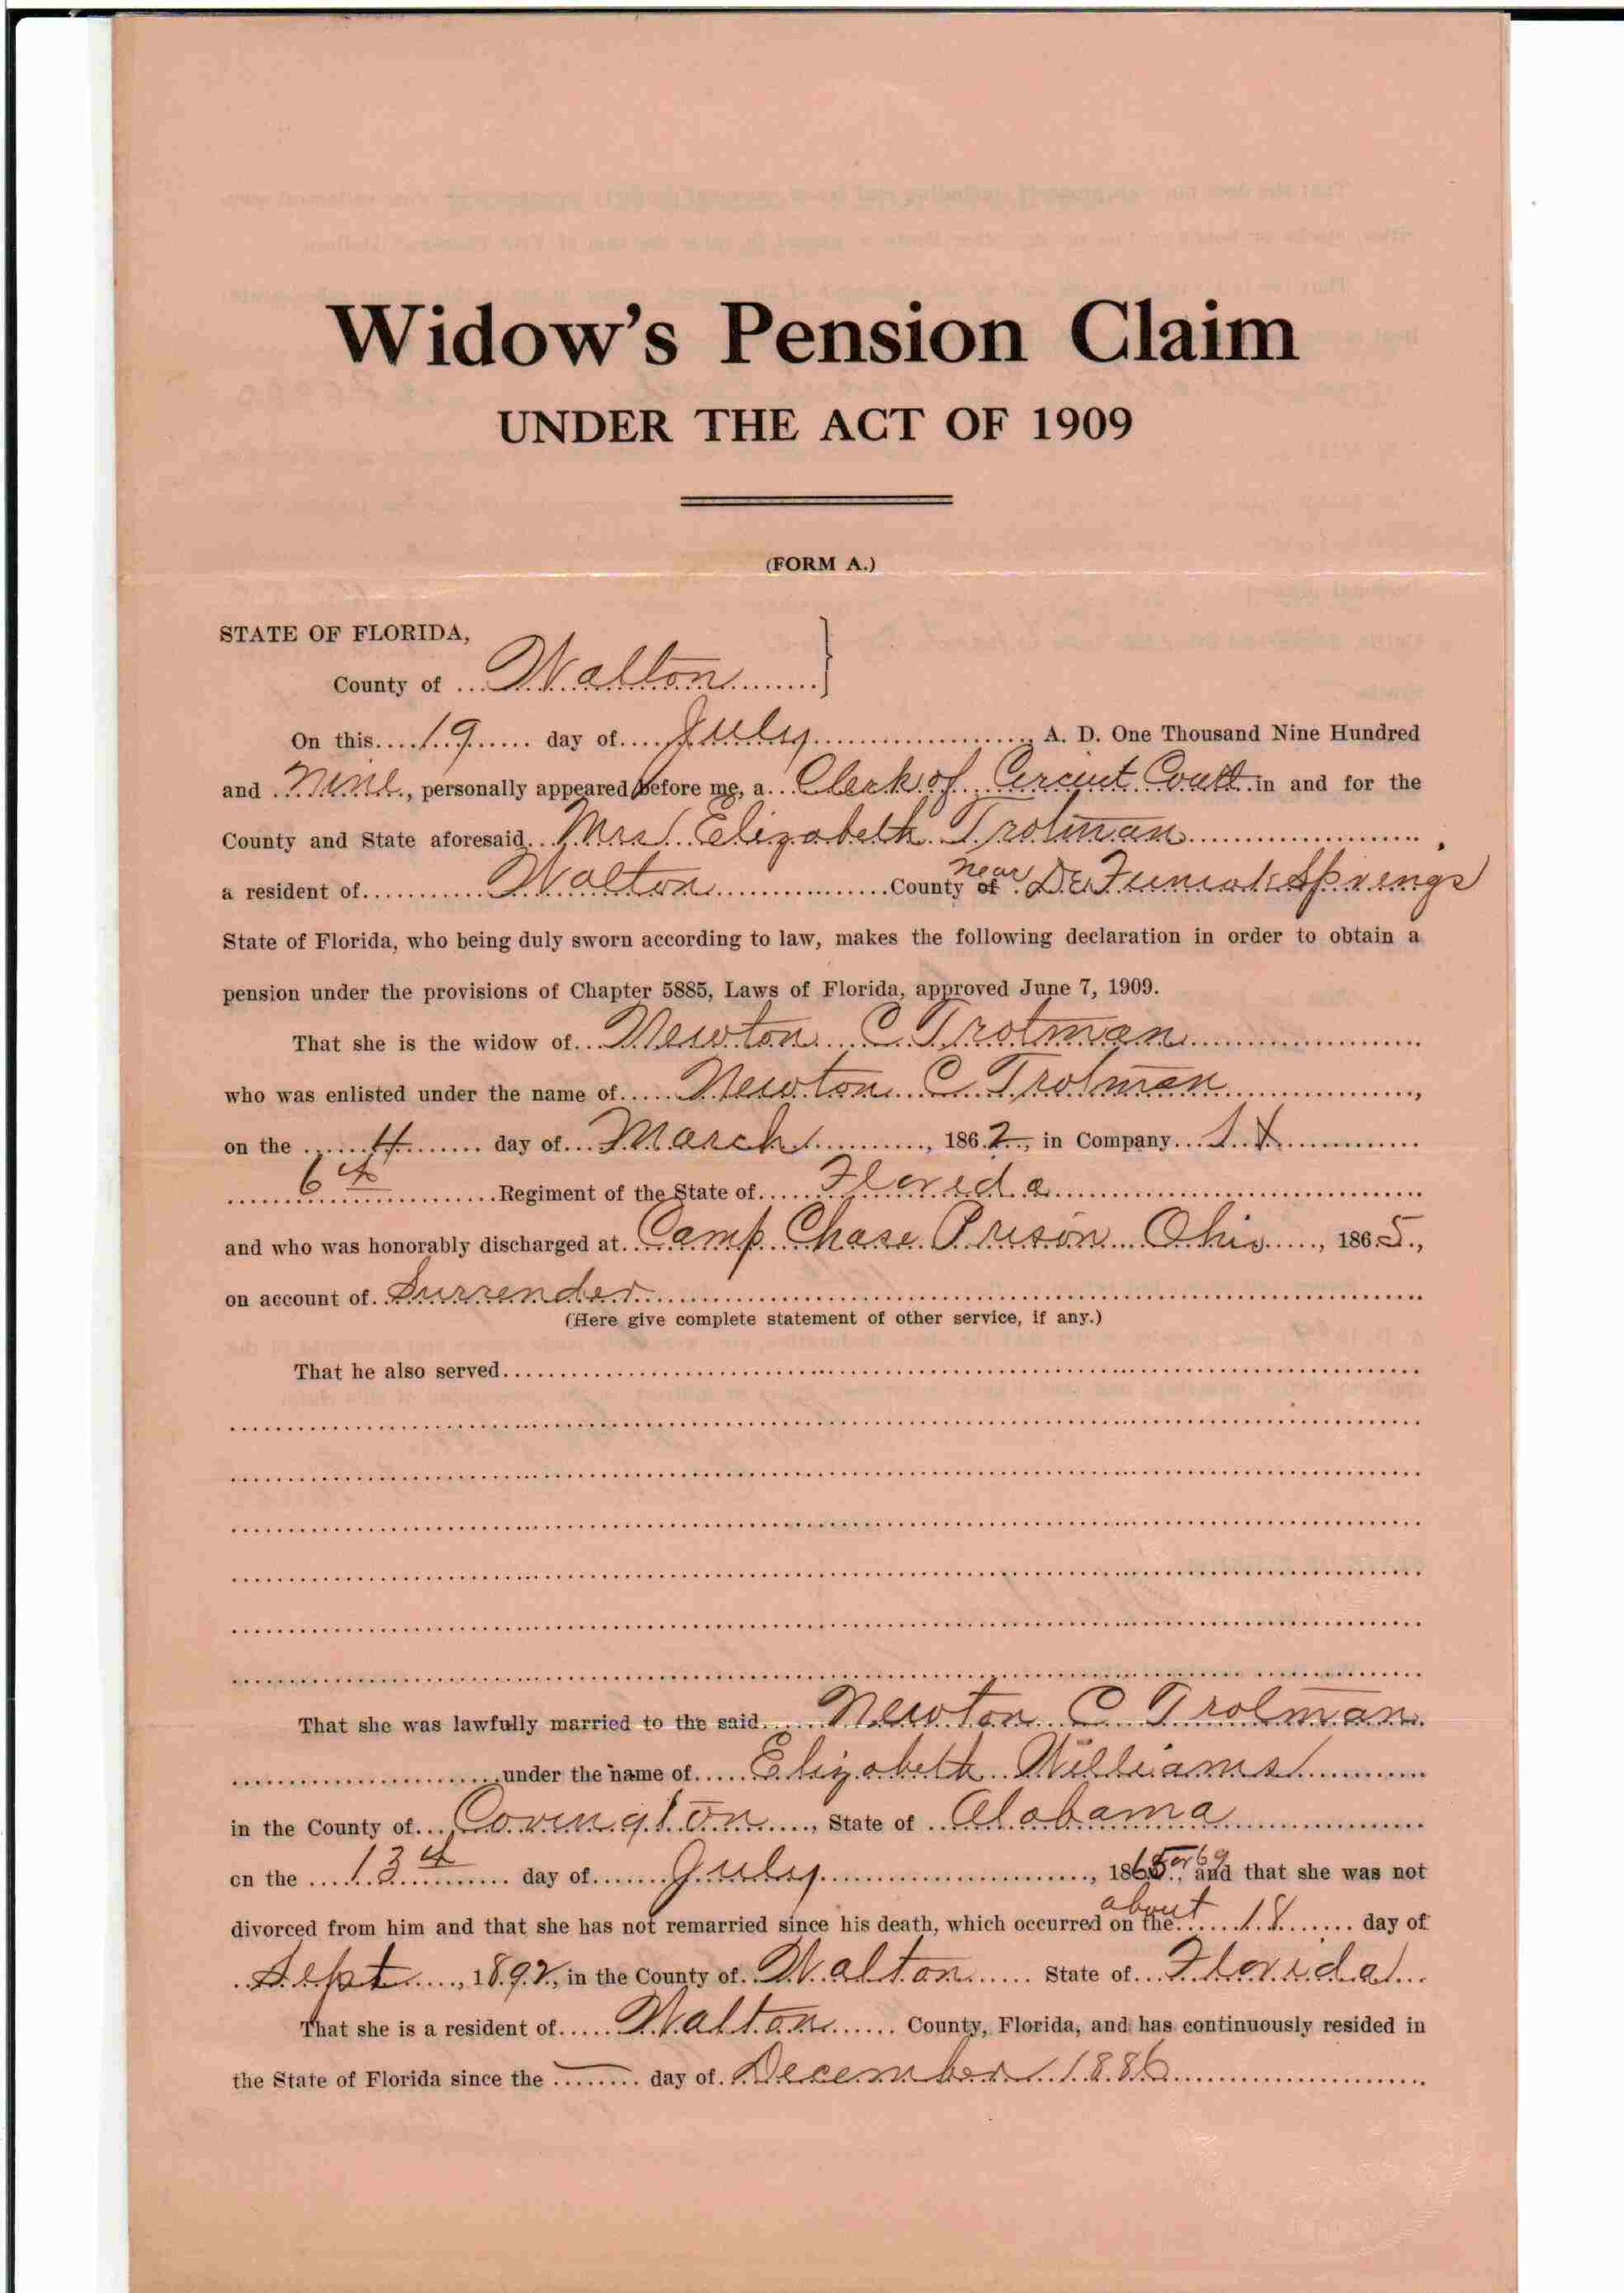 Widow's Pension Claim
UNDER THE ACT OF 1909
(FORM A.)
STATE OF FLORIDA,
County of Walton
On this 19 day of July, A. D. One Thousand Nine Hundred
and Nine, personally appeared before me, a Clerk of Circuit Court in and for the
County and State aforesaid Mrs Elizabeth Trotman
a resident of Walton County of near DeFuniak Springs
State of Florida, who being duly sworn according to law, makes the following declaration in order to obtain a
pension under the provisions of Chapter 5885, Laws of Florida, approved June 7, 1909.
That she is the widow of Newton C Trotman
who was enlisted under the name of Newton C Trotman,
on the 4 day of March, 1862, in Company
6th Regiment of the State of Florida
and who was honorably discharged at Camp Chase Prison Ohio, 1865,
on account of Surrender
(Here give complete statement of other service, if any.)
That he also served
That she was lawfully married to the said Newton C Trotman
under the name of Elizabeth Williams
in the County of Covington, State of Alabama
on the 13th day of July, 186 or 69, and that she was not
divorced from him and that she has not remarried since his death, which occurred on the about 18 day of
Sept, 1892, in the County of Walton State of Florida
That she is a resident of Walton County, Florida, and has continuously resided in
the State of Florida since the day of December 1886